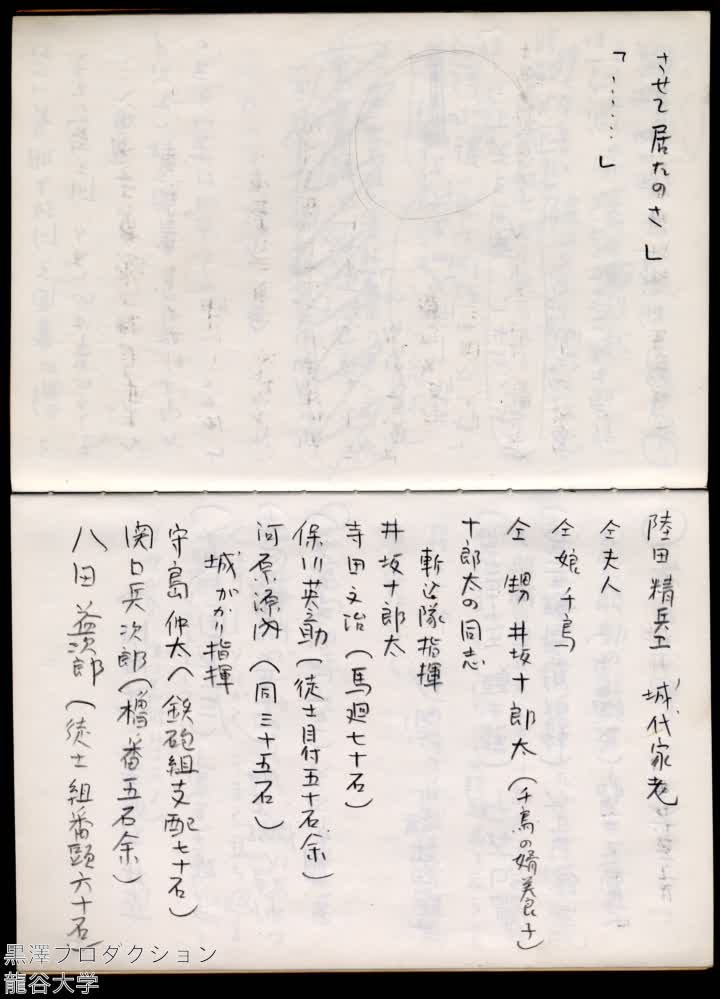 させて居たのさ」
「……」
陸田精兵エ 城代家老
仝夫人
仝娘 千鳥
仝 甥 井坂十郎太（千鳥の婿養子）
十郎太の同志
斬込隊指揮
井坂十郎太
寺田文治（馬廻七十石）
保川英助（徒士目付五十石余）
河原源内（同三十五石）
城がかり指揮
守島仲太（鉄砲組支配七十石）
関口兵次郎（櫓番五石余）
八田益次郎（徒士組番頭六十石）
黒澤プロダクション
龍谷大学